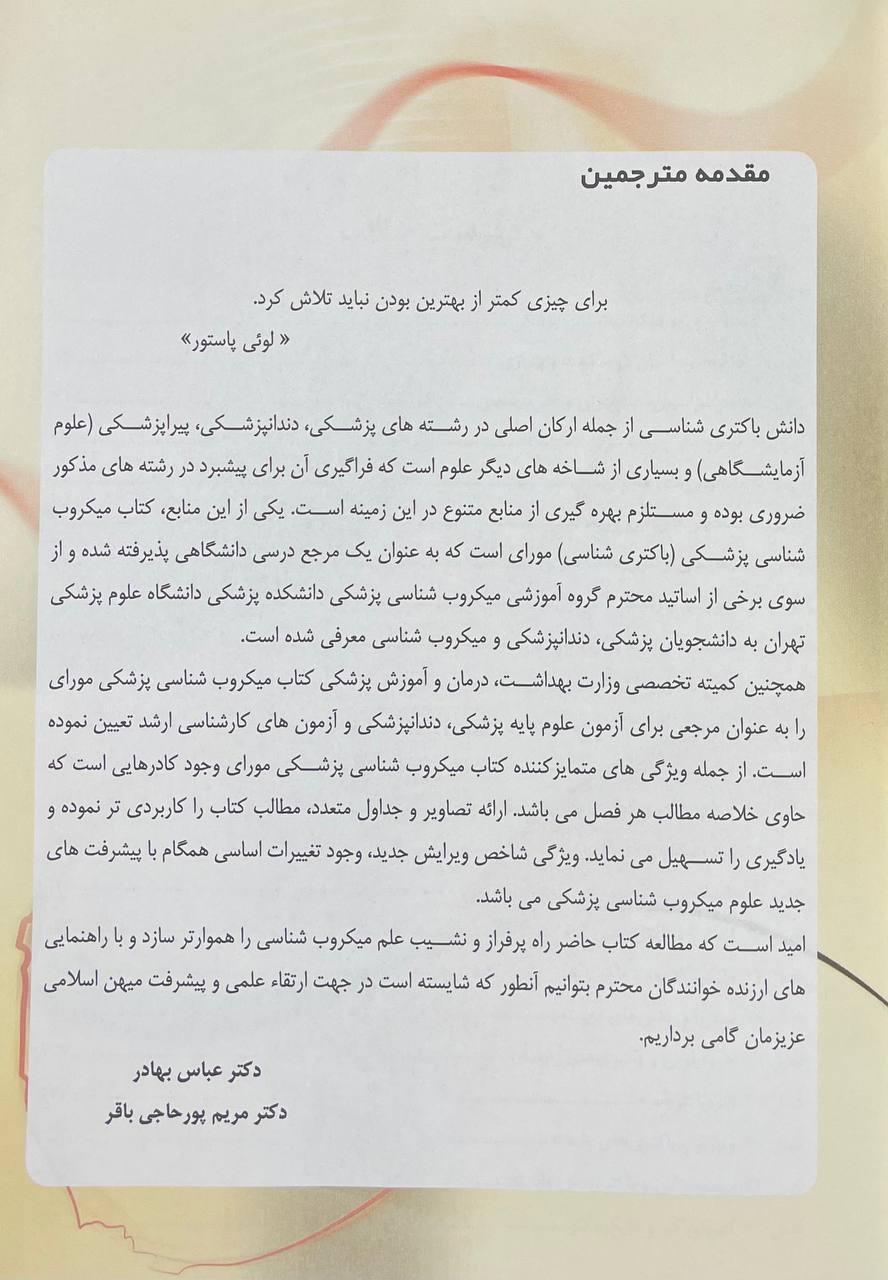 مقدمه مترجمین
برای چیزی کمتر از بهترین بودن نباید تلاش کرد.
« لوئی پاستور»
دانش باکتری شناسی از جمله ارکان اصلی در رشته های پزشکی، دندانپزشکی، پیراپزشکی (علوم
آزمایشگاهی) و بسیاری از شاخه های دیگر علوم است که فراگیری آن برای پیشبرد در رشته های مذکور
ضروری بوده و مستلزم بهره گیری از منابع متنوع در این زمینه است. یکی از این منابع، کتاب میکروب
شناسی پزشکی (باکتری شناسی) مورای است که به عنوان یک مرجع درسی دانشگاهی پذیرفته شده و از
سوی برخی از اساتید محترم گروه آموزشی میکروب شناسی پزشکی دانشکده پزشکی دانشگاه علوم پزشکی
تهران به دانشجویان پزشکی، دندانپزشکی و میکروب شناسی معرفی شده است.
همچنین کمیته تخصصی وزارت بهداشت، درمان و آموزش پزشکی کتاب میکروب شناسی پزشکی مورای
را به عنوان مرجعی برای آزمون علوم پایه پزشکی، دندانپزشکی و آزمون های کارشناسی ارشد تعیین نموده
است. از جمله ویژگی های متمایزکننده کتاب میکروب شناسی پزشکی مورای وجود کادرهایی است که
حاوی خلاصه مطالب هر فصل می باشد. ارائه تصاویر و جداول متعدد، مطالب کتاب را کاربردی تر نموده و
یادگیری را تسهیل می نماید. ویژگی شاخص ویرایش جدید، وجود تغییرات اساسی همگام با پیشرفت های
جدید علوم میکروب شناسی پزشکی می باشد.
امید است که مطالعه کتاب حاضر راه پرفراز و نشیب علم میکروب شناسی را هموارتر سازد و با راهنمایی
های ارزنده خوانندگان محترم بتوانیم آنطور که شایسته است در جهت ارتقاء علمی و پیشرفت میهن اسلامی
عزیزمان گامی برداریم.
دکتر عباس بهادر
دکتر مریم پورحاجی باقر